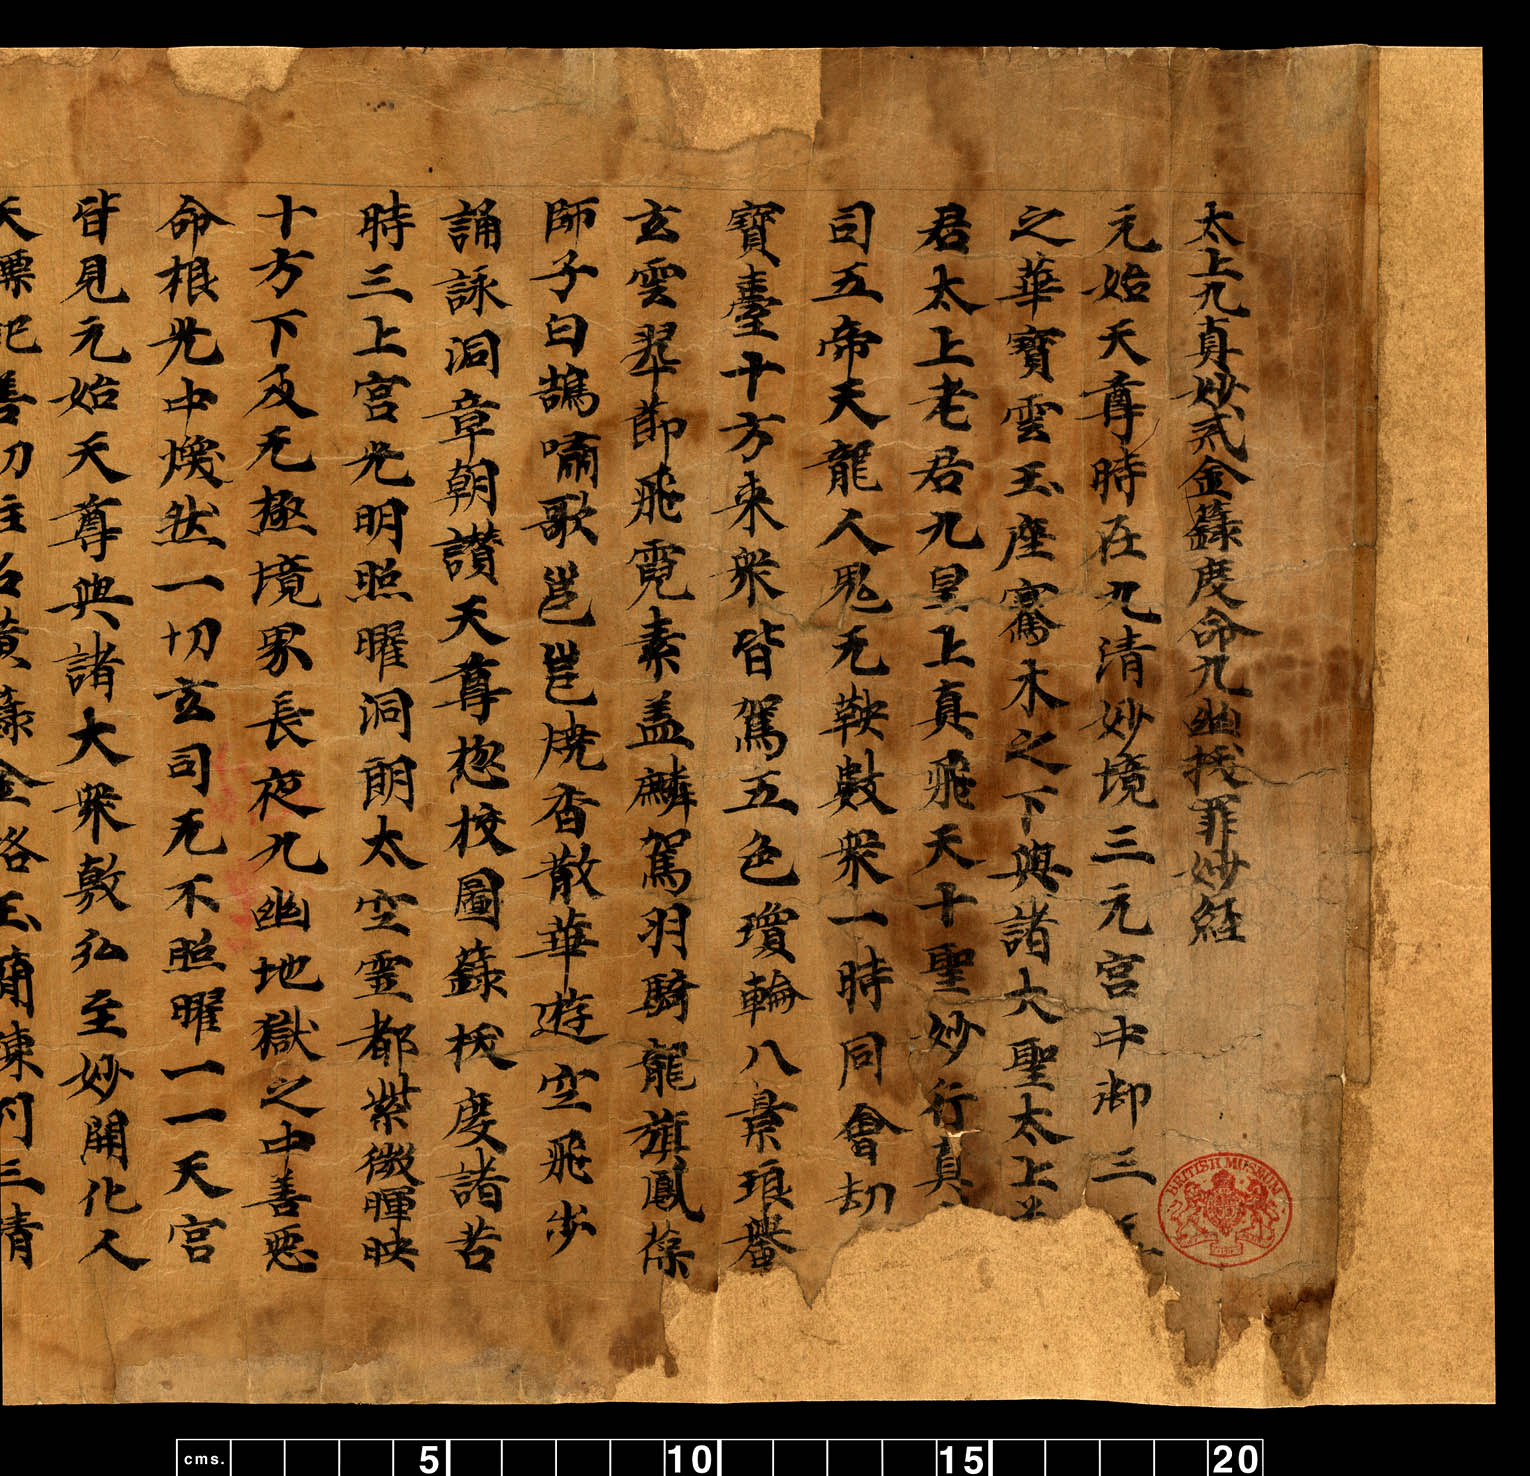 太上九真妙戒金籙度命九幽拔罪妙経
元始天尊時在九清妙境三元宮中御三
之華寶雲玉座騫木之下與諸大聖太上
君太上老君九皇上真飛天十聖妙行真
司五帝天龍人鬼无鞅數衆一時同會劫
寶臺十方来衆皆駕五色瓊輪八景琅轝
玄雲翠節飛霓素盖麟駕羽騎龍旗鳳葆
師子白鵠嘯歌邕邕焼香散華遊空飛步
誦詠洞章朝讃天尊惣校圖籙拔度諸苦
時三上宮光明照曜洞朗太空霊都紫微暉映
十方下及无極境界長夜九幽地獄之中善惡
命根光中煥然一切玄司无不照曜一一天宮
皆見元始天尊與諸大衆敷弘至妙開化人
天 善 黃籙金格玉 三清
BRITISH MUSEUM
cms. 5 10 15 20